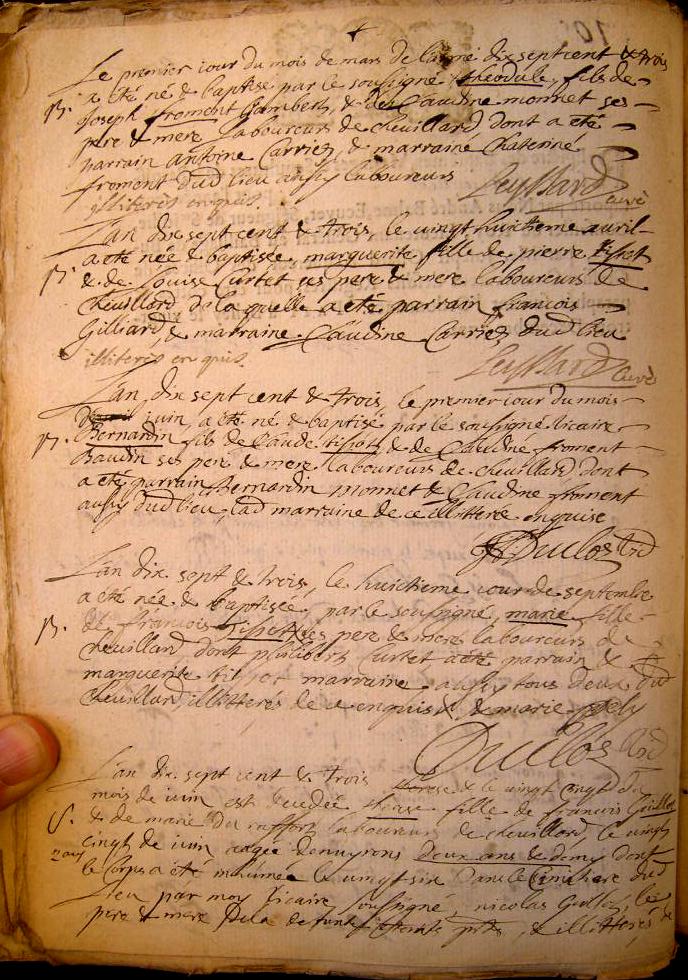 Le premier jour du mois de mars de l'année dix sept cent & trois
a eté né & baptise par le soussigné theodule, fils de
B. Joseph froment Gambert, & de Claudine monnet ses
pere & mere Laboureurs de cheuillard, dont a eté
parrain antoine Carrier, & marraine Chaterine
froment dud lieu aussy laboureurs
illiterés enquis. curé
L'an dix sept cent & trois, le vingt huictieme auril
a eté née & baptisée, marguerite fille de pierre tissot
B. & de Louise Curtet ses pere & mere laboureurs de
cheuillard de laquelle a eté parrain francois
Gilliard, & marraine Claudine Carrier dud lieu
illiterés enquis. curé
L'an dix sept cent & trois, le premier jour du mois
juin, a eté né & baptisé par le soussigné vicaire
B. Bernardin fils de Claude tissot & de Claudine froment
Baudin ses pere & mere laboureurs de cheuillard, dont
a eté parrain Bernardin monnet & Claudine froment
aussy dud lieu, lad marraine de ce illitteré enquise
Duclos
L'an dix sept & trois, le huictieme jour de septembre
a eté née & baptisée, par le soussigné, marie fille
B. de francois tissot ses pere & mere laboureurs de
cheuillard dont philibert Curtet a eté parrain &
marguerite tissot marraine aussy tous deux dud
cheuillard, illitterés de ce enquis & marie
Duclos
L'an dix sept cent & trois & le vingt cinq du
mois de juin est decedée therese fille de francois
S. & de marie du laboureurs de cheuillard, le vingt
cinq de juin aagée denuyrons deux ans & demy dont
le corps a eté inhumée le vingt six dans le Cimithere dud
Lieu par moy vicaire soussigné nicolas les
pere & mere de la defunte & illitterés de